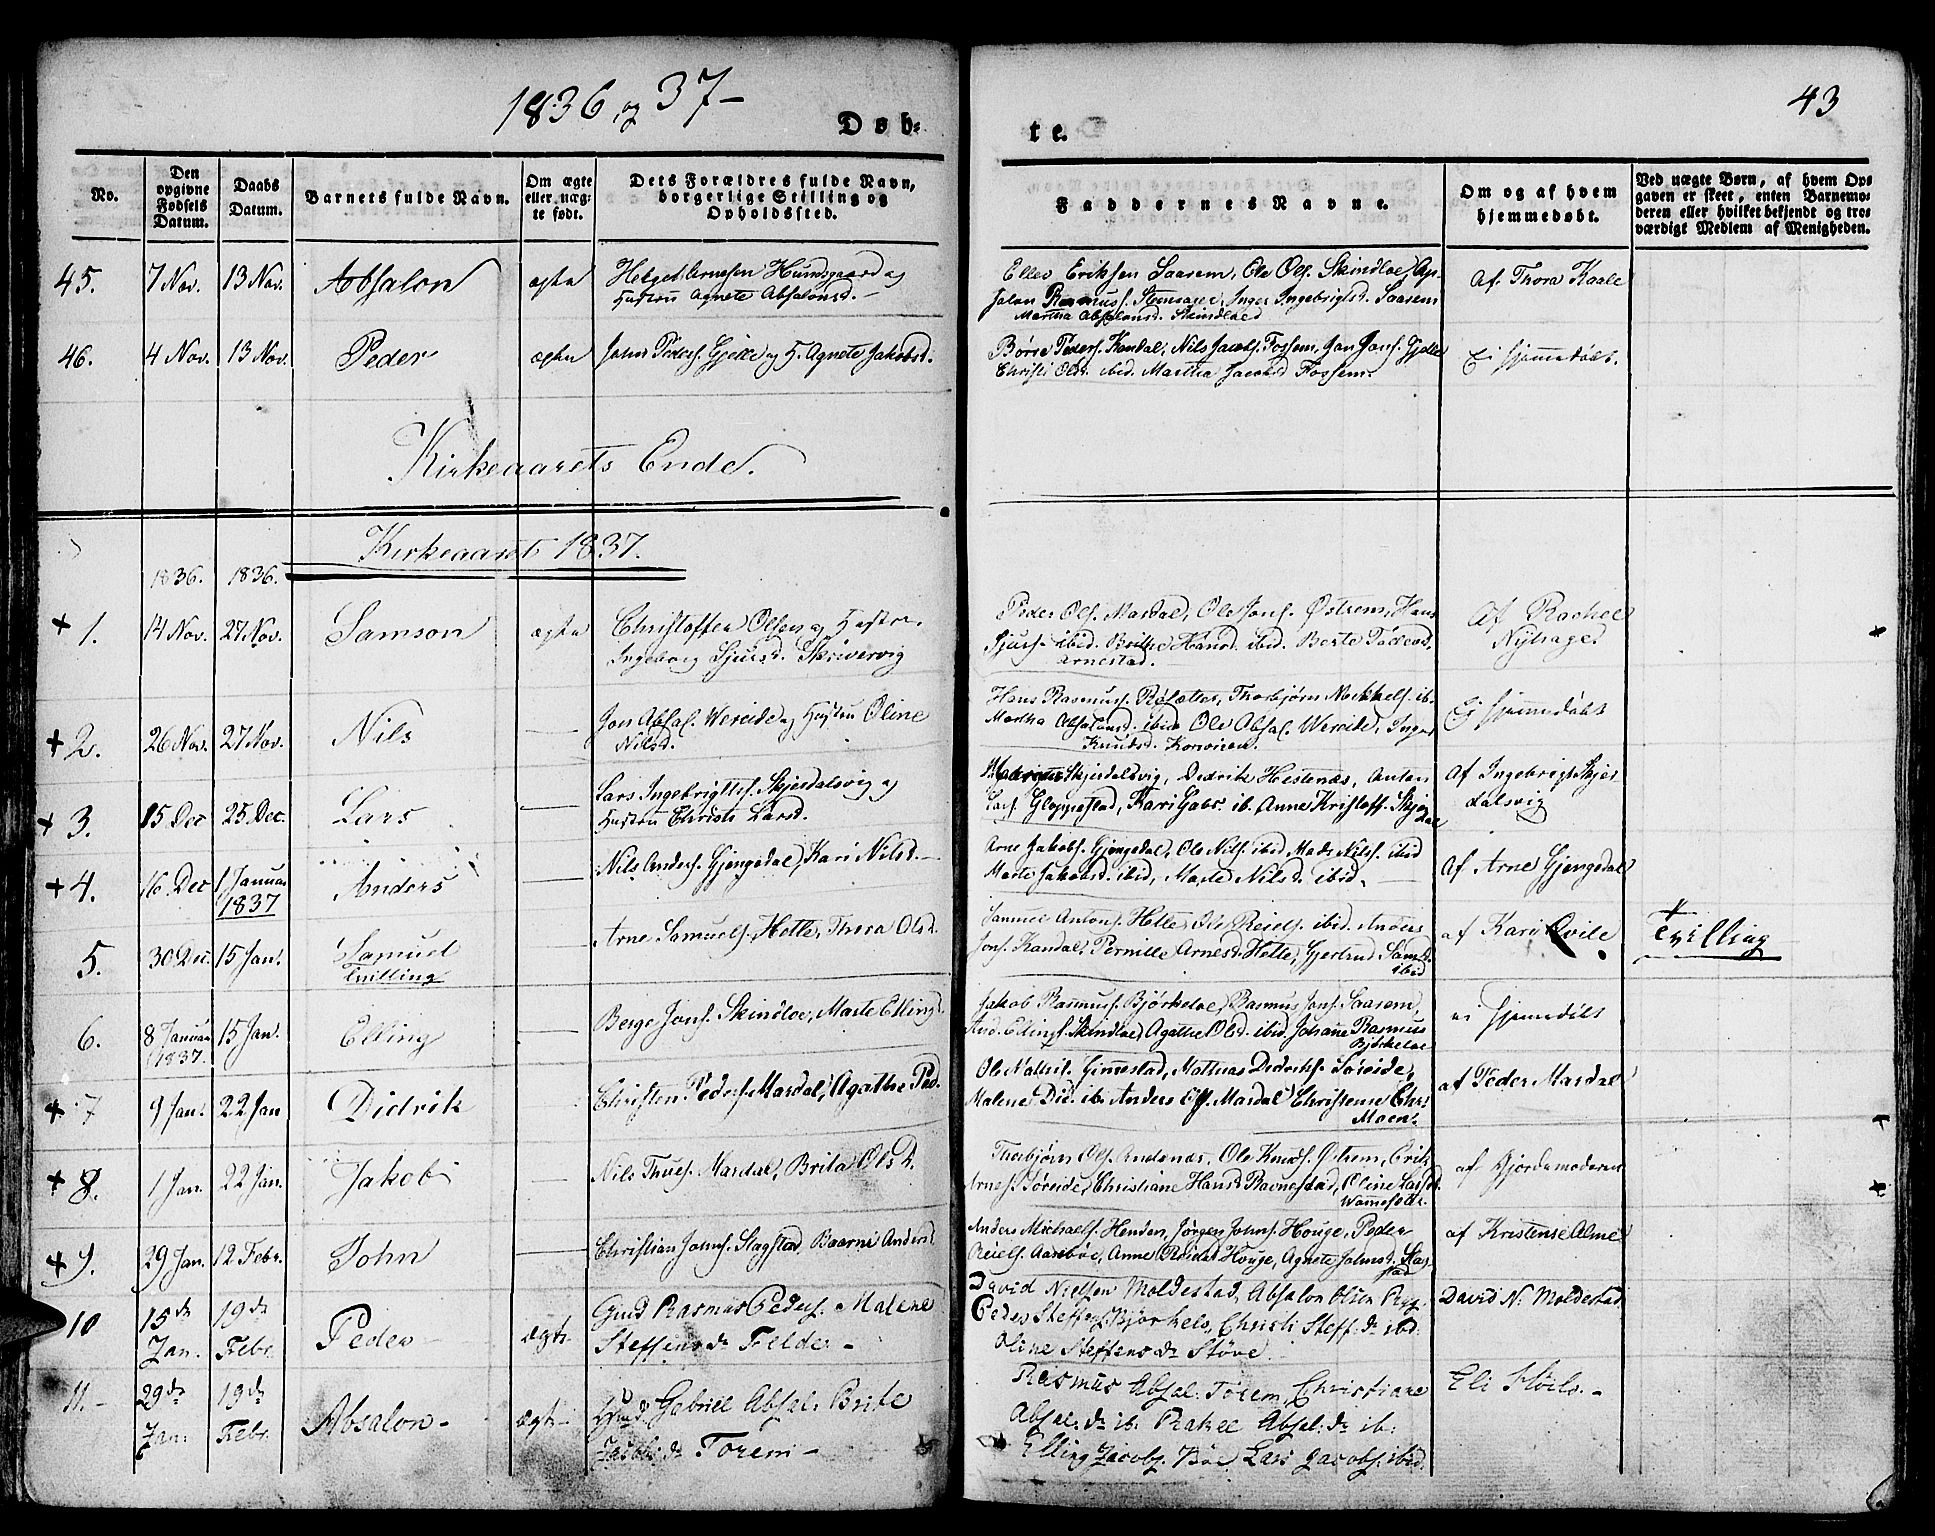 1836 og 37-
43
Døb-
te.
No.
Den opgivne Fødsels Datum.
Daabs Datum.
Barnets fulde Navn.
Om ægte eller uæg- te født.
Dets Forældres fulde Navn, borgerlige Stilling og Opholdssted.
Faddernes Navne.
Om og af hvem hjemmedøbt.
Ved uægte Børn, af hvem Op-
gaven er skeet, enten Barnemo-
deren eller hvilket bekjendt og tro-
værdigt Medlem af Menigheden.
45. 7 Nov. 13 Nov. Absalon ægte Hundsgaard og
Hustru Agnete Absalonsd.
Eller Eriksen Saarem, Ole Ols. Skindloe, Ap-
salon Rasmuss. Steensager, Inger Ingebrigtsd. Saarem
Martha Absalonsd. Skindloed
Af Thora Kaale
46. 4 Nov. 13 Nov. Peder ægte John Peders. Gjelle og H. Agnete Jakobsd.
Børre Peders. Kandal, Nils Jacobs. Fossem, Jon Jons. Gjelle
Christi Olsd. ibid. Martha Jacobsd Fossem.
Ei hjemmedøbt.
Kirkeaarets Ende.
Kirkeaaret 1837.
1836. 1836.
+ 1. 14 Nov. 27 Nov. Samson ægte Christoffer Olsen og Hustru
Ingeborg Sjursd. Skrivervig
Peder Ols. Mardal, Ole Jons. Østrem, Hans
Sjurs. ibid. Brithe Hansd. ibid. Berte
Arnestad.
Af Rachel
+ 2. 26 Nov. 27 Nov. Nils Jon Absal. Wereide og Hustru Oline
Nilsd.
Hans Rasmuss. Thorbjørn Mekkels. ib.
Martha Absalonsd. ibid Ole Absal. Wereide, Inger
Knudsd.
Ej hjemmedøbt
+ 3. 15 Dec 25 Dec. Lars Lars Ingebrigtss. Skjerdalsvig og
Hustru Christi Larsd.
Skjerdalsvig, Didrik Hestenæs, Anton
Lars. Gloppestad, Kari Gabr. ib. Anne Kristoff. Skjer
dal
Af Ingebrigt Skjer
dalsvig
+ 4. 16. Dec 1 Januar
1837 Anders Nils Anders. Gjengedal, Kari Nilsd.
Arne Jakobs. Gjengedal, Ole Nils. ibid Mads Nils. ibid
Marte Jakobsd ibid, Marte Nilsd ibid.
Af Arne Gjengedal
5. 30 Dec. 15 Jan. Samuel
Tvilling
Arne Samuels. Hetle, Thora Olsd.
Samuel Antons. Hetle, Ole Reiels. ibid. Anders
Jons. Kandal, Pernille Arnesd. Hetle, Gjertrud Samsd.
ibid
af Kari Qvile
+
Tvilling
6. 8 Januar
1837. 15 Jan. Elling Berge Jons. Skindloe, Marte Ellingsd.
Jakob Rasmus. Bjørkeloe, Rasmus Jons. Saarem,
And. Ellings. Skindloe, Agathe Olsd. ibid. Johanne Rasmus
Bjørkeloe
ei hjemmedøbt
+ 7 9 Jan. 22 Jan Didrik Christen Peders. Mardal, Agathe Ped.
Ole Gimmestad, Mathias Didriks. Søreide,
Malene Did. ib. Anders Mardal Christense Chr.
Moen.
af Peder Mardal
+ 8. 1 Jan. 22 Jan. Jakob Nils Thues. Mardal, Brita Olsd.
Thorbjørn Ols. Andenæs, Ole Knuds. Østrem, Erik
Arnes. Søreide, Christiane Hansd. Ravnestad, Oline
af Gjordemoderen
+ 9. 29 Jan. 12 Febr. John Christian Johns. Slagstad, Baarni Andersd
Anders Michaels. Henden, Jørgen Johns. Houge, Peder
Reiels. Aasebøe, Anne Houge, Agnete Johnsd. Slag-
stad
af Kristense Alme
10 15de
Jan. 19de
Febr. Peder ægte Gmd Rasmus Peders. Malene
Steffens dr Felde
David Nielsen Moldestad, Absalon Olsen Ryg,
Peder Steffens Bjørkelo, Christi Steff: dr ibid.
Oline Steffens dr Støve.
David N. Moldestad
11. 29de
Jan. 19de
Febr. Absalon ægte Gmd Gabriel Absal: Brite
Jacobs. dr Torem
Rasmus Absal: Torem, Christiane
Absal: dr ib. Rakel Absal: dr ib:
Elling Jacobs. Bøe Lars Jacobs. ibid.
Eli